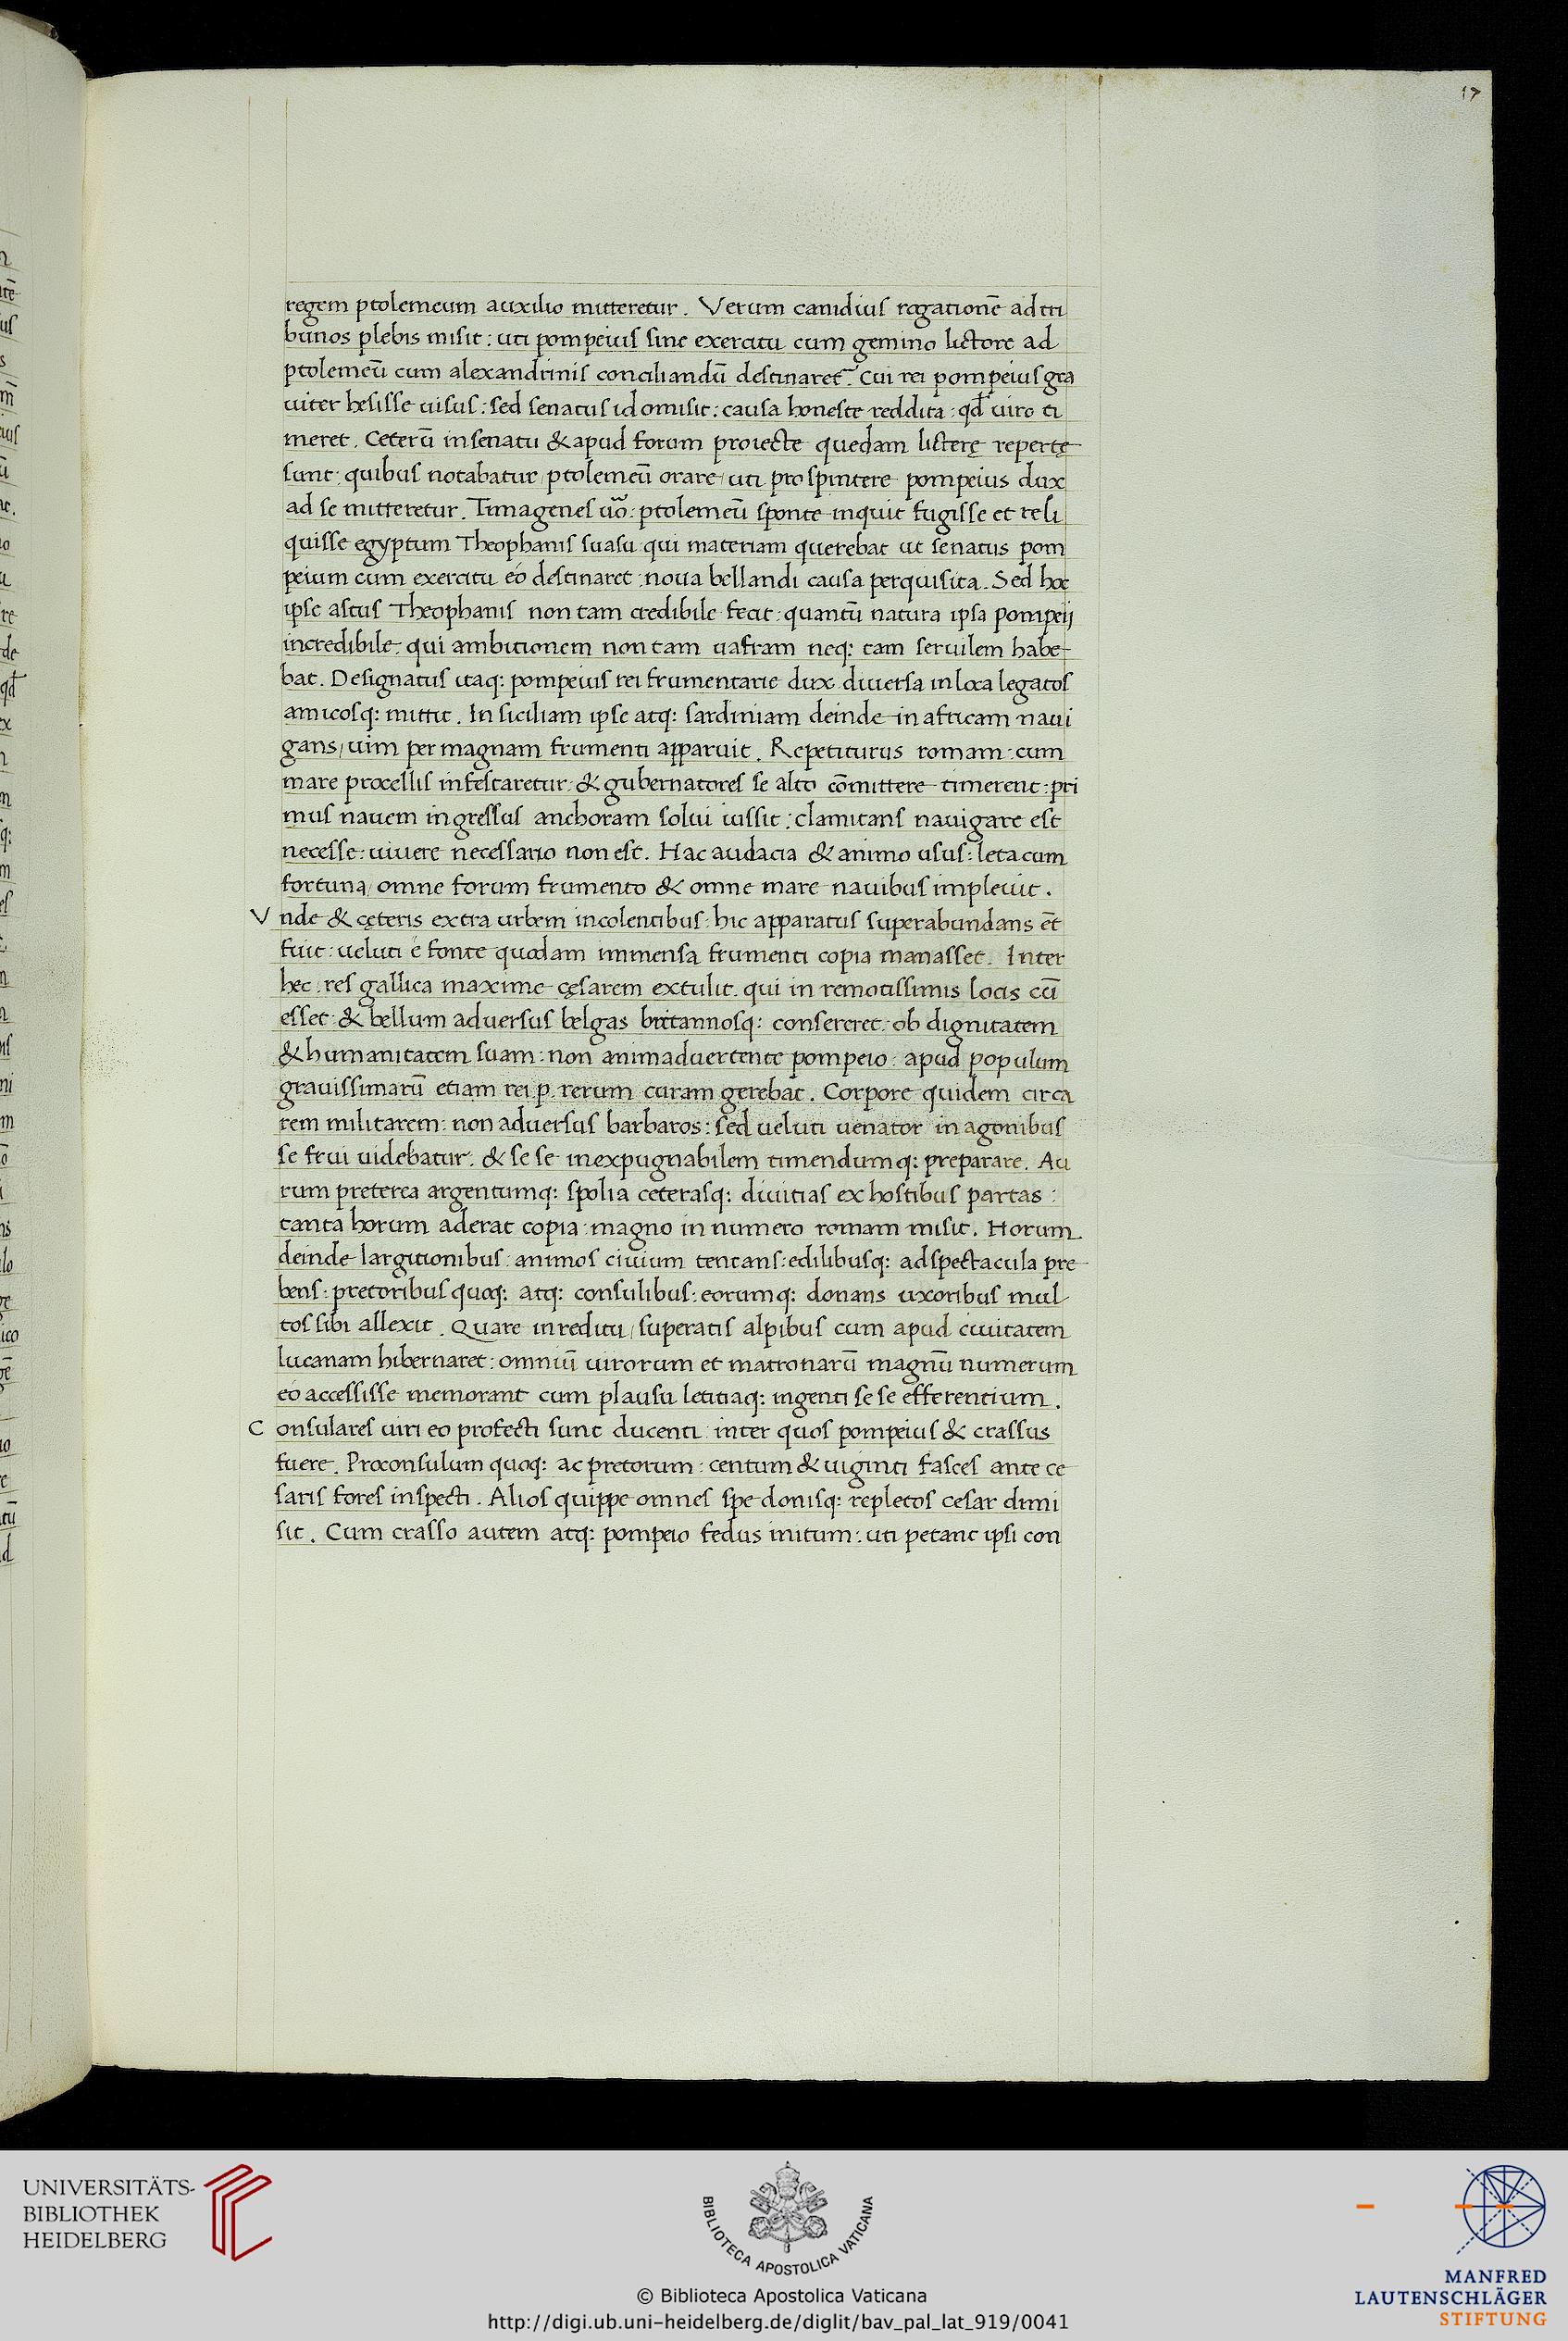 17
regem ptolemeum auxilio mitteretur. Verum canidius rogationē ad tri
bunos plebis misit: uti pompeius sine exercitu cum gemino lictore ad
ptolemeū cum alexandrinis conciliandū destinaret. Cui rei pompeius gra
uiter hesisse uisus: sed senatus id omisit: causa honeste reddita: qđ uiro ti
meret. Ceterū in senatu & apud forum proiecte quedam litterę repertę
sunt: quibus notabatur ptolemeū orare, uti pro spintere pompeius dux
ad se mitteretur. Timagenes uo: ptolemeū sponte inquit fugisse et reli
quisse egyptum Theophanis suasu: qui materiam querebat ut senatus pom
peium cum exercitu eo destinaret: noua bellandi causa perquisita. Sed hoc
ipse astus Theophanis non tam credibile fecit: quantū natura ipsa pompeij
incredibile: qui ambitionem non tam uafram neq: tam seruilem habe
bat. Designatus itaq: pompeius rei frumentarie dux diuersa in loca legatos
amicosq: mittit. In siciliam ipse atq: sardiniam deinde in africam naui
gans, uim per magnam frumenti apparuit. Repetiturus romam: cum
mare procellis infestaretur: & gubernatores se alto cōmittere timerent: pri
mus nauem ingressus anchoram solui iussit: clamitans nauigare est
necesse: uiuere necessario non est. Hac audacia & animo usus: leta cum
fortuna, omne forum frumento & omne mare nauibus impleuit.
Vnde & cęteris extra urbem incolentibus: hic apparatus superabundans ēt
fuit: ueluti e fonte quodam immensa frumenti copia manasset. Inter
hec: res gallica maxime cęsarem extulit. qui in remotissimis locis cū
esset: & bellum aduersus belgas britannosq: consereret: ob dignitatem
& humanitatem suam: non animaduertente pompeio: apud populum
grauissimarū etiam rei p. rerum curam gerebat. Corpore quidem circa
rem militarem: non aduersus barbaros: sed ueluti uenator in agonibus
se frui uidebatur: & se se inexpugnabilem timendumq: preparare. Au
rum preterea argentumq: spolia ceterasq: diuitias ex hostibus partas:
tanta horum aderat copia: magno in numero romam misit. Horum
deinde largitionibus: animos ciuium tentans: edilibusq: ad spectacula pre
bens: pretoribus quoq: atq: consulibus: eorumq: donans uxoribus mul
tos sibi allexit. Quare in reditu, superatis alpibus cum apud ciuitatem
lucanam hibernaret: omniū uirorum et matronarū magnū numerum
eo accessisse memorant cum plausu letitiaq: ingenti se se efferentium.
Consulares uiri eo profecti sunt ducenti: inter quos pompeius & crassus
fuere. Proconsulum quoq: ac pretorum: centum & uiginti fasces ante ce
saris fores inspecti. Alios quippe omnes spe donisq: repletos cesar dimi
sit. Cum crasso autem atq: pompeio fedus initum: uti petant ipsi con
UNIVERSITÄTS-
BIBLIOTHEK
HEIDELBERG
BIBLIOTECA APOSTOLICA VATICANA
© Biblioteca Apostolica Vaticana
http://digi.ub.uni-heidelberg.de/diglit/bav_pal_lat_919/0041
MANFRED
LAUTENSCHLÄGER
STIFTUNG